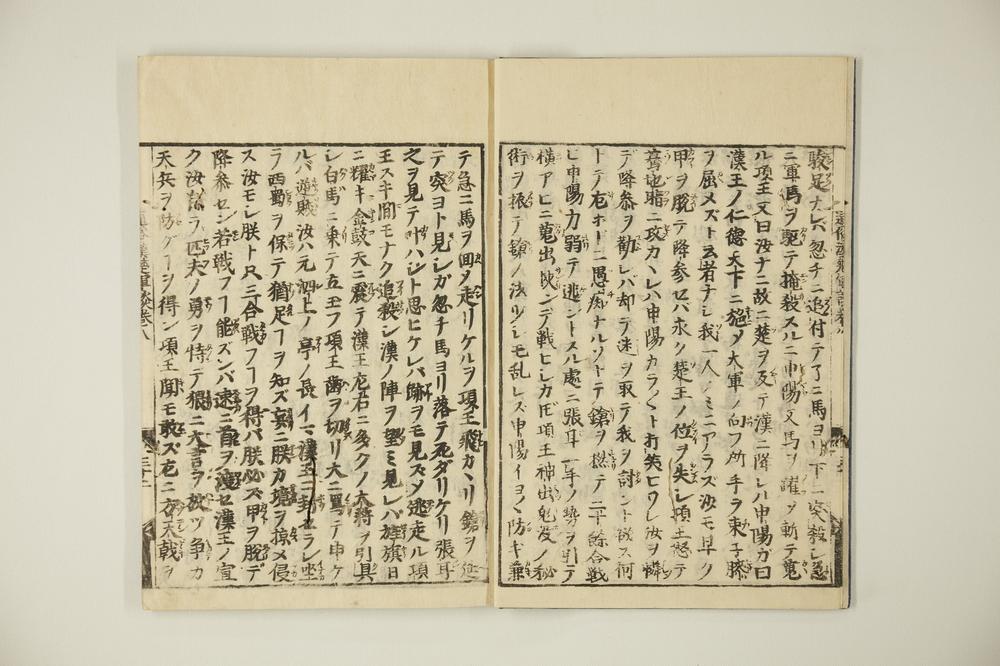 駿足ナレバ忽チニ追付テ了ニ馬ヨリ下ニ突殺シ急
ニ軍馬ヲ駆テ掩殺スルニ申陽又馬ヲ躍ラシ斬テ蒐
ル項王又曰汝ナニ故ニ楚ヲ反テ漢ニ降レハ申陽ガ曰
漢王ノ仁徳天下ニ施メ大軍ノ向フ所手ヲ束子膝
ヲ屈メズト云者ナシ我一人ノミニアラズ汝モ早ク
甲ヲ脱テ降参セバ永ク楚王ノ位ヲ失レ項王怒テ
驀地暗ニ攻カヽレハ申陽カラ〱ト打笑ヒワレ汝ヲ憐
デ降参ヲ勧レバ却テ迷ヲ取テ我ヲ討ント欲ス何
トテ厄ホドニ愚痴ナルゾトテ鎗ヲ撚テ二十余合戦
ヒ申陽力弱テ逃ントスル處ニ張耳一手ノ勢ヲ引テ
横アヒニ蒐出挟ンデ戦ヒシカ𪜈項王神出鬼没ノ秘
術ヲ振テ鎗ノ法少シモ乱レズ申陽イヨ〱防ギ兼
テ急ニ馬ヲ回メ走リケルヲ項王飛カヽリ鎗ヲ延
テ突ヨト見レガ忽チ馬ヨリ落テ死ダリケリ張耳
之ヲ見テ叶ハジト思ヒケレバ餘ヲモ見スメ逃走ル項
王スキ間モナク追殺シ漢ノ陣ヲ望ミ見レバ旌旗日
ニ耀キ金鼓天ニ震テ漢王左右ニ多クノ大将ヲ引具
シ白馬ニ乗テ立玉フ項王歯ヲ切リ大ニ罵テ申ケ
ルバ逆賊汝ハ元泗上ノ亭ノ長イマ漢王ニ封セラレ坐
ラ西蜀ヲ保テ猶足ヿヲ知ズ妄ニ朕カ境ヲ掠メ侵
ス汝モシ朕ト只三合戦フヿヲ得バ朕必ズ甲ヲ脱デ
降参セン若戦フヿ能ズンバ速ニ首ヲ渡セ漢王ノ宣
ク汝詻ラ匹夫ノ勇ヲ恃テ猥ニ大言ヲ放ツ争カ
天兵ヲ防グヿヲ得ン項王聞モ敢ズ右ニ方天戟ヲ